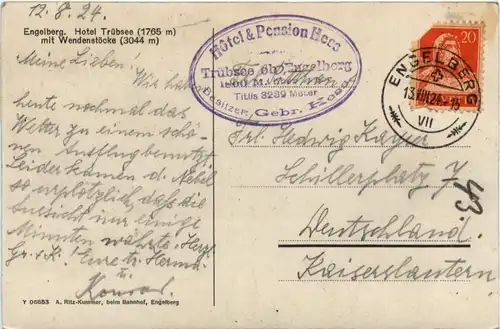 12.8.24.
Engelberg. Hotel Trübsee (1765 m)
mit Wendenstöcke (3044 m)
Meine Lieben! Wir haben
heute nochmal das
Wetter zu einem schö-
nen Ausflug benutzt
Leider kamen d. Nebel
so urplötzlich, dass die
Aussicht nur einige
Minuten währte. Herzl.
Gr. + K. Eure tr. Herma
u.
Konrad.
Y 06653 A. Ritz-Kummer, beim Bahnhof, Engelberg
Hôtel & Pension Hess
Trübsee ob Engelberg
1800 M.
Titlis 3239 Meter
Besitzer, Gebr. Hess
20
ENGELBERG
13.VIII.24.
VII
Frl. Hedwig Kayser
Schillerplatz 7
Deutschland.
Kaiserslautern.
43.